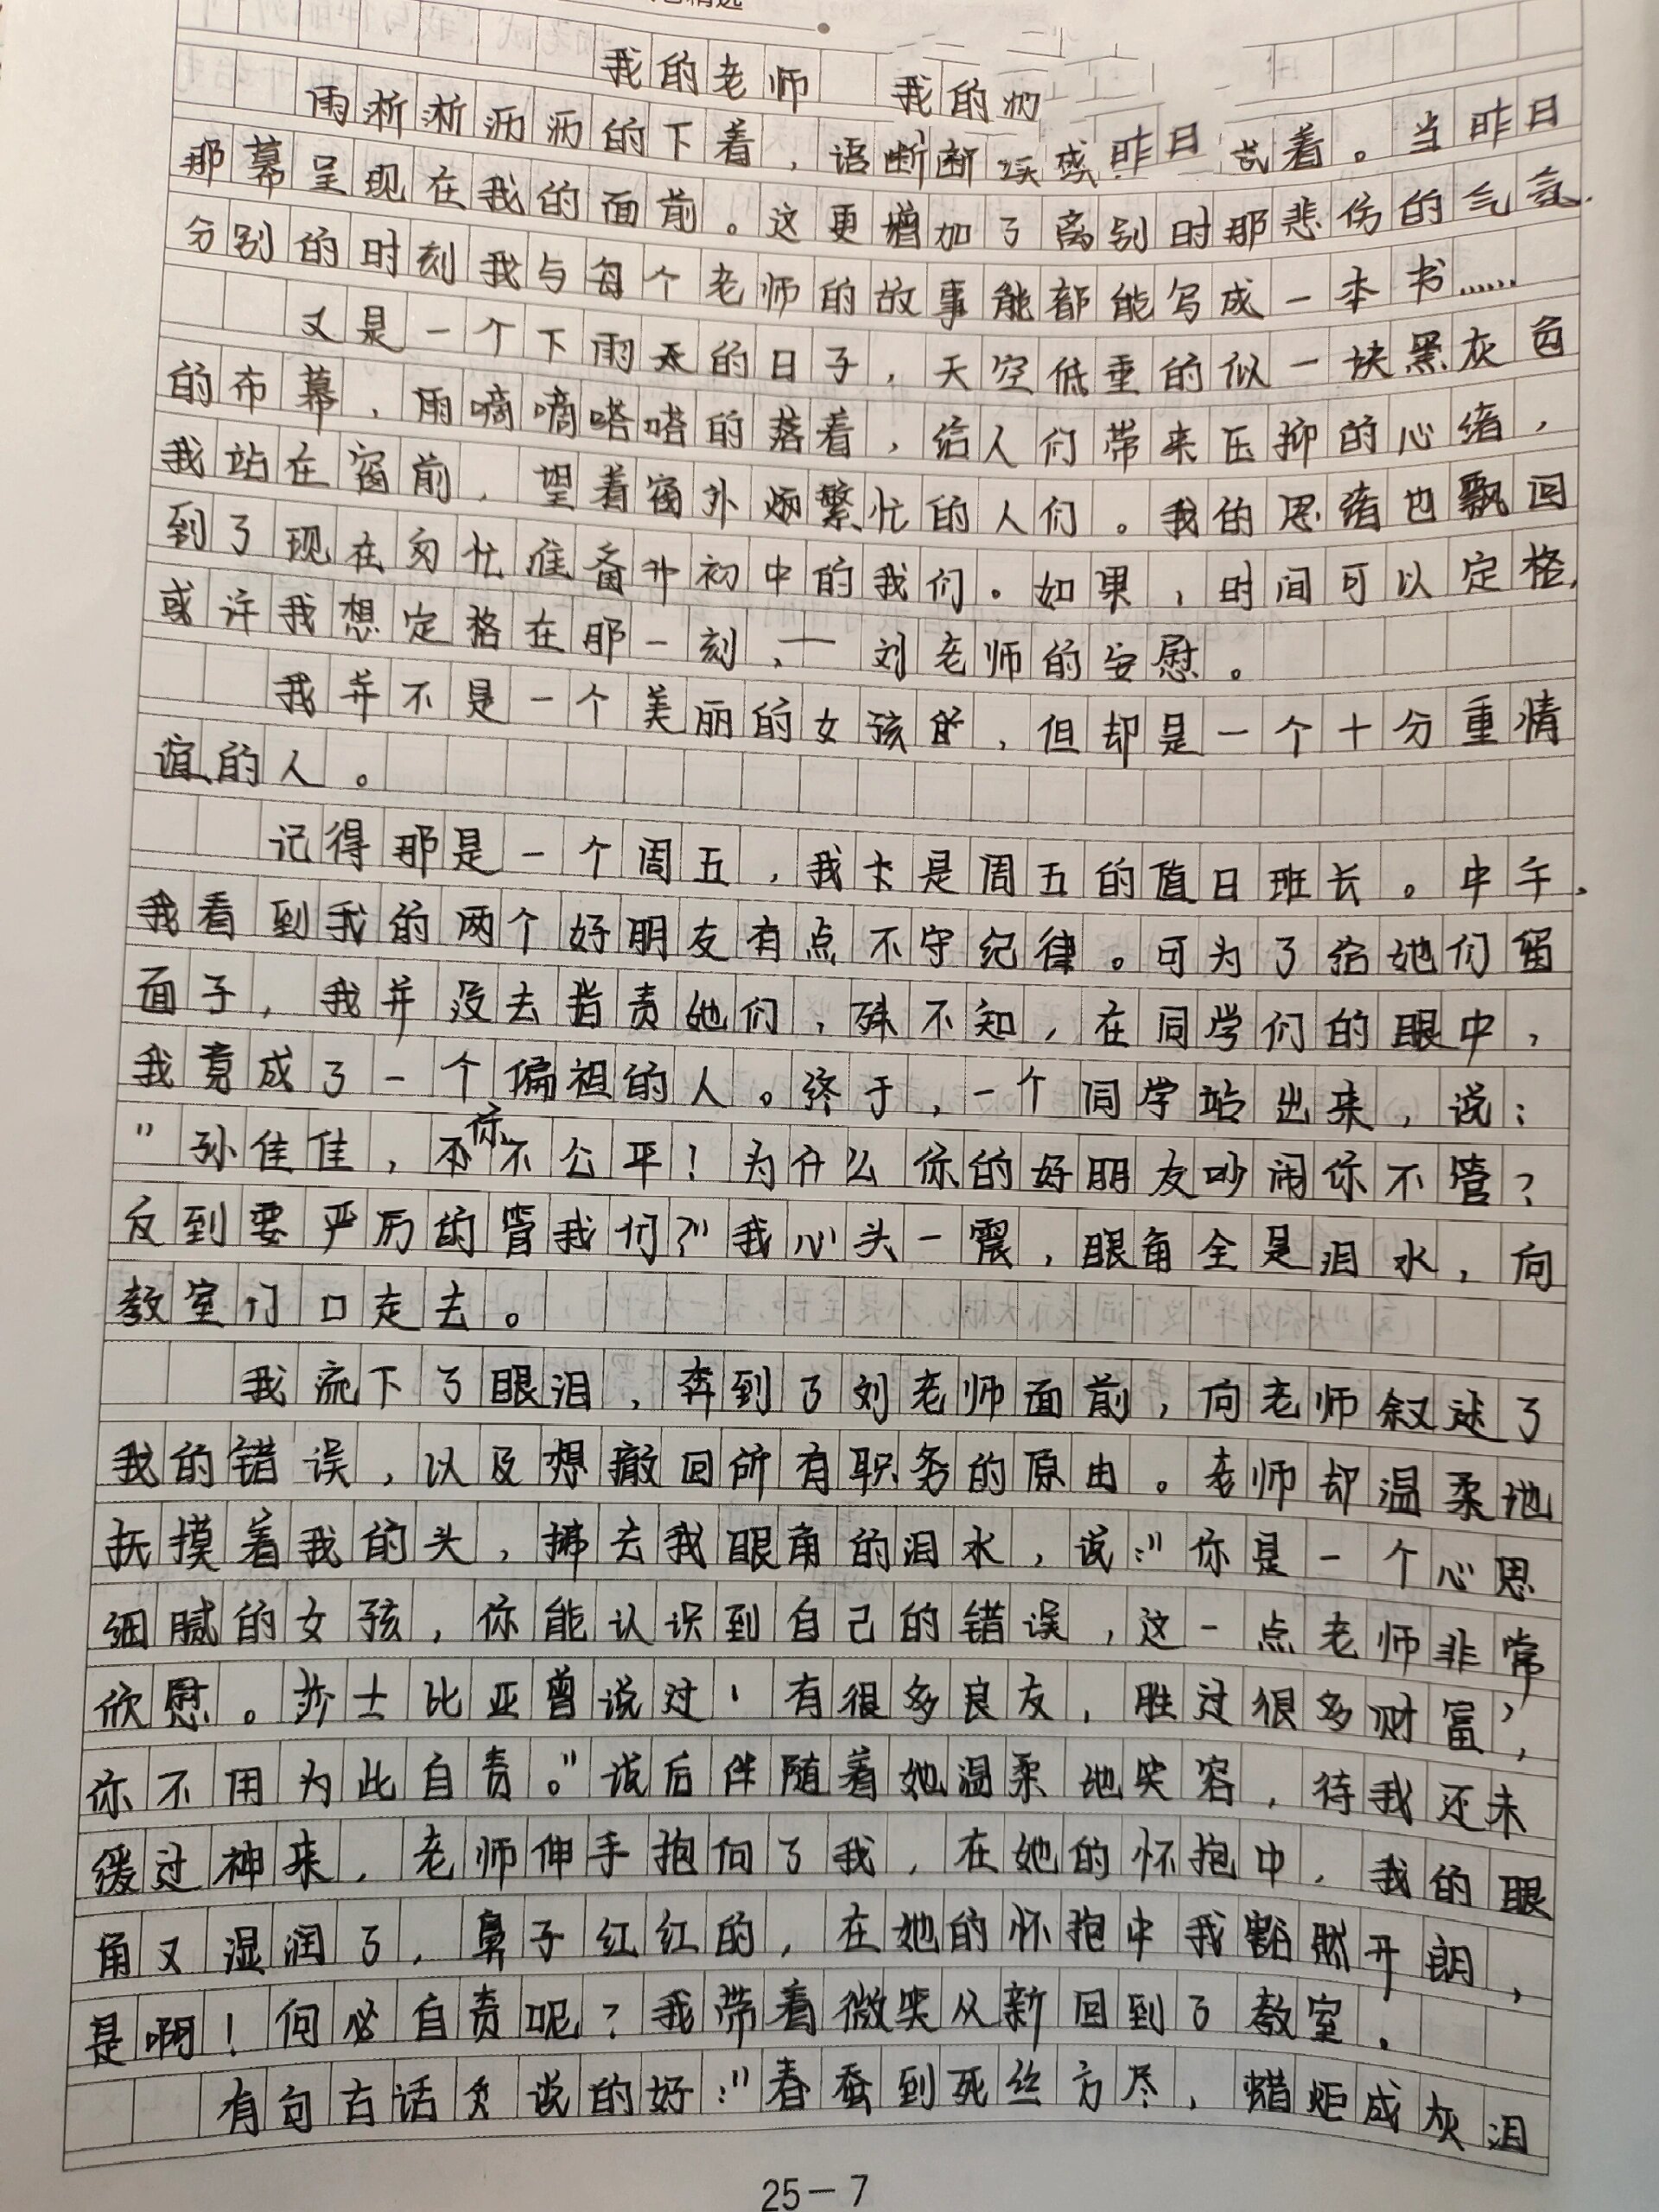 精选
我的老师 我的
雨淅淅沥沥的下着，语断断续 昨日 着。当昨日
那幕呈现在我的面前。这更增加了离别时那悲伤的气氛.
分别的时刻我与每个老师的故事能都能写成一本书……
又是一个下雨天的日子，天空低重的似一块黑灰色
的布幕，雨嘀嘀嗒嗒的落着，给人们带来压抑的心绪，
我站在窗前，望着窗外 繁忙的人们。我的思绪也飘回
到了现在匆忙准备升初中的我们。如果，时间可以定格,
或许我想定格在那一刻，——刘老师的安慰。
我并不是一个美丽的女孩的，但却是一个十分重情
谊的人。
记得那是一个周五，我 是周五的值日班长。中午，
我看到我的两个好朋友有点不守纪律。可为了给她们留
面子，我并没去指责她们，殊不知，在同学们的眼中，
我竟成了一个偏袒的人。终于，一个同学站出来，说：
"孙佳佳，你不公平！为什么你的好朋友吵闹你不管？
反到要严厉的管我们？"我心头一震，眼角全是泪水，向
教室门口走去。
我流下了眼泪，奔到了刘老师面前，向老师叙述了
我的错误，以及想撤回所有职务的原由。老师却温柔地
抚摸着我的头，拂去我眼角的泪水，说："你是一个心思
细腻的女孩，你能认识到自己的错误，这一点老师非常
欣慰。莎士比亚曾说过'有很多良友，胜过很多财富'，
你不用为此自责。"说后伴随着她温柔地笑容，待我还未
缓过神来，老师伸手抱向了我，在她的怀抱中，我的眼
角又湿润了，鼻子红红的，在她的怀抱中我豁然开朗，
是啊！何必自责呢？我带着微笑从新回到了教室。
有句古话 说的好："春蚕到死丝方尽，蜡炬成灰泪
25-7